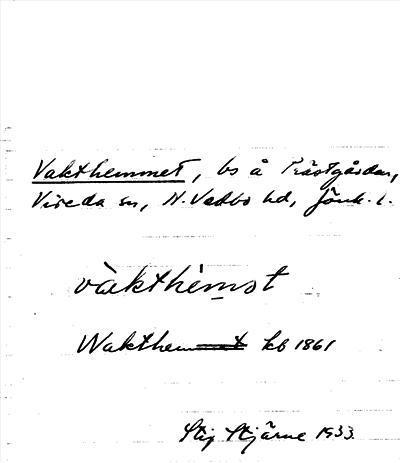 Vakthemmet, bs å Prästgården,
Vireda sn, N. Vedbo hd, Jönk. l.
vàkthèmst
Wakthemmet kb 1861
Stig Stjärne 1933.